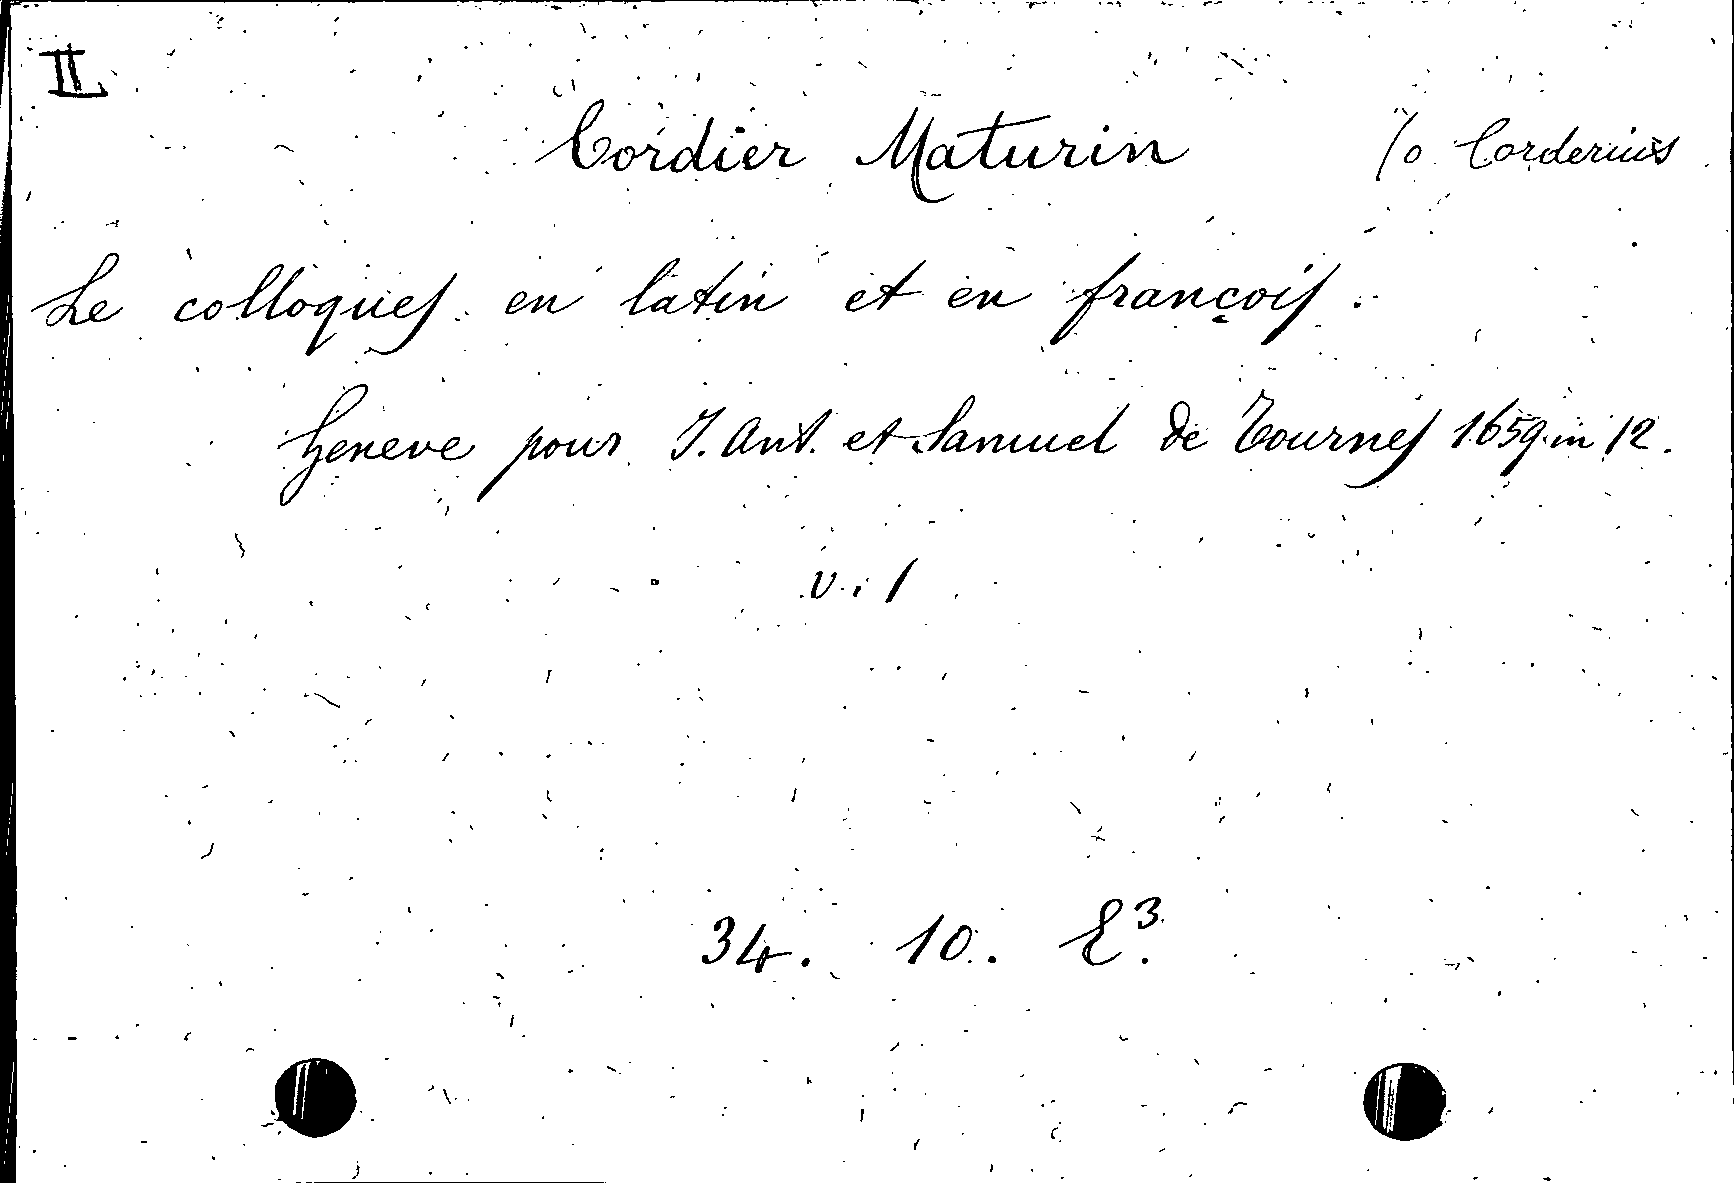 II
Cordier Maturin /o Corderius
Le colloques en latin et en françois.
Geneve pour J. Ant. et Samuel de Tournes 1659 in 12.
v. : 1
34. 10. E³.